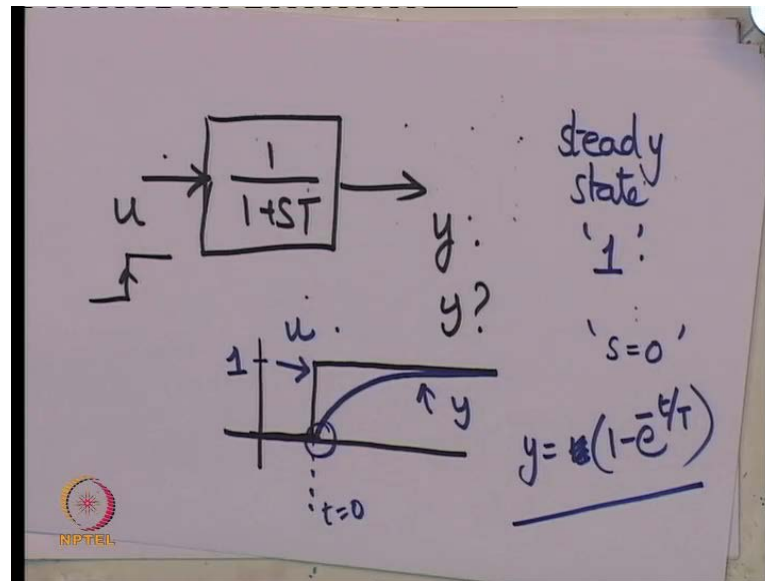 1
1+ST
u
y:
y?
steady
state
'1'
's=0'
u
1
y
t=0
y=(1-e^-t/T)
NPTEL